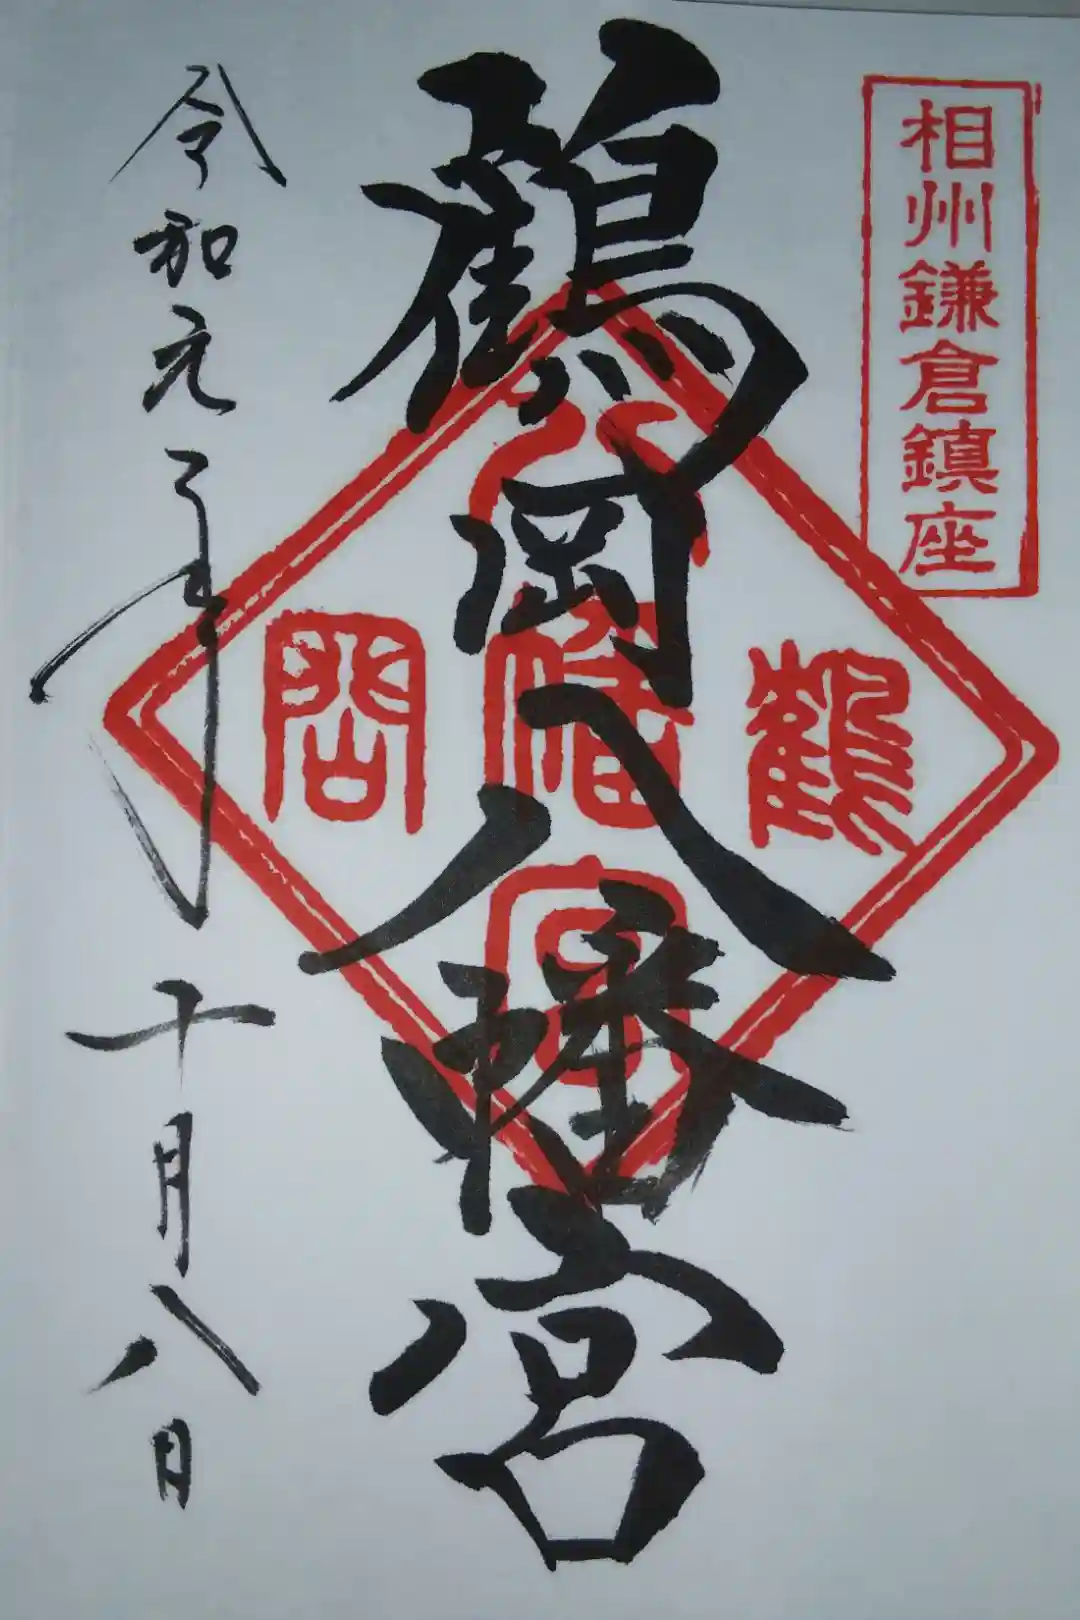 相州鎌倉鎮座
鶴岡八幡宮
鶴
八幡宮
岡
令和元年
十月八日